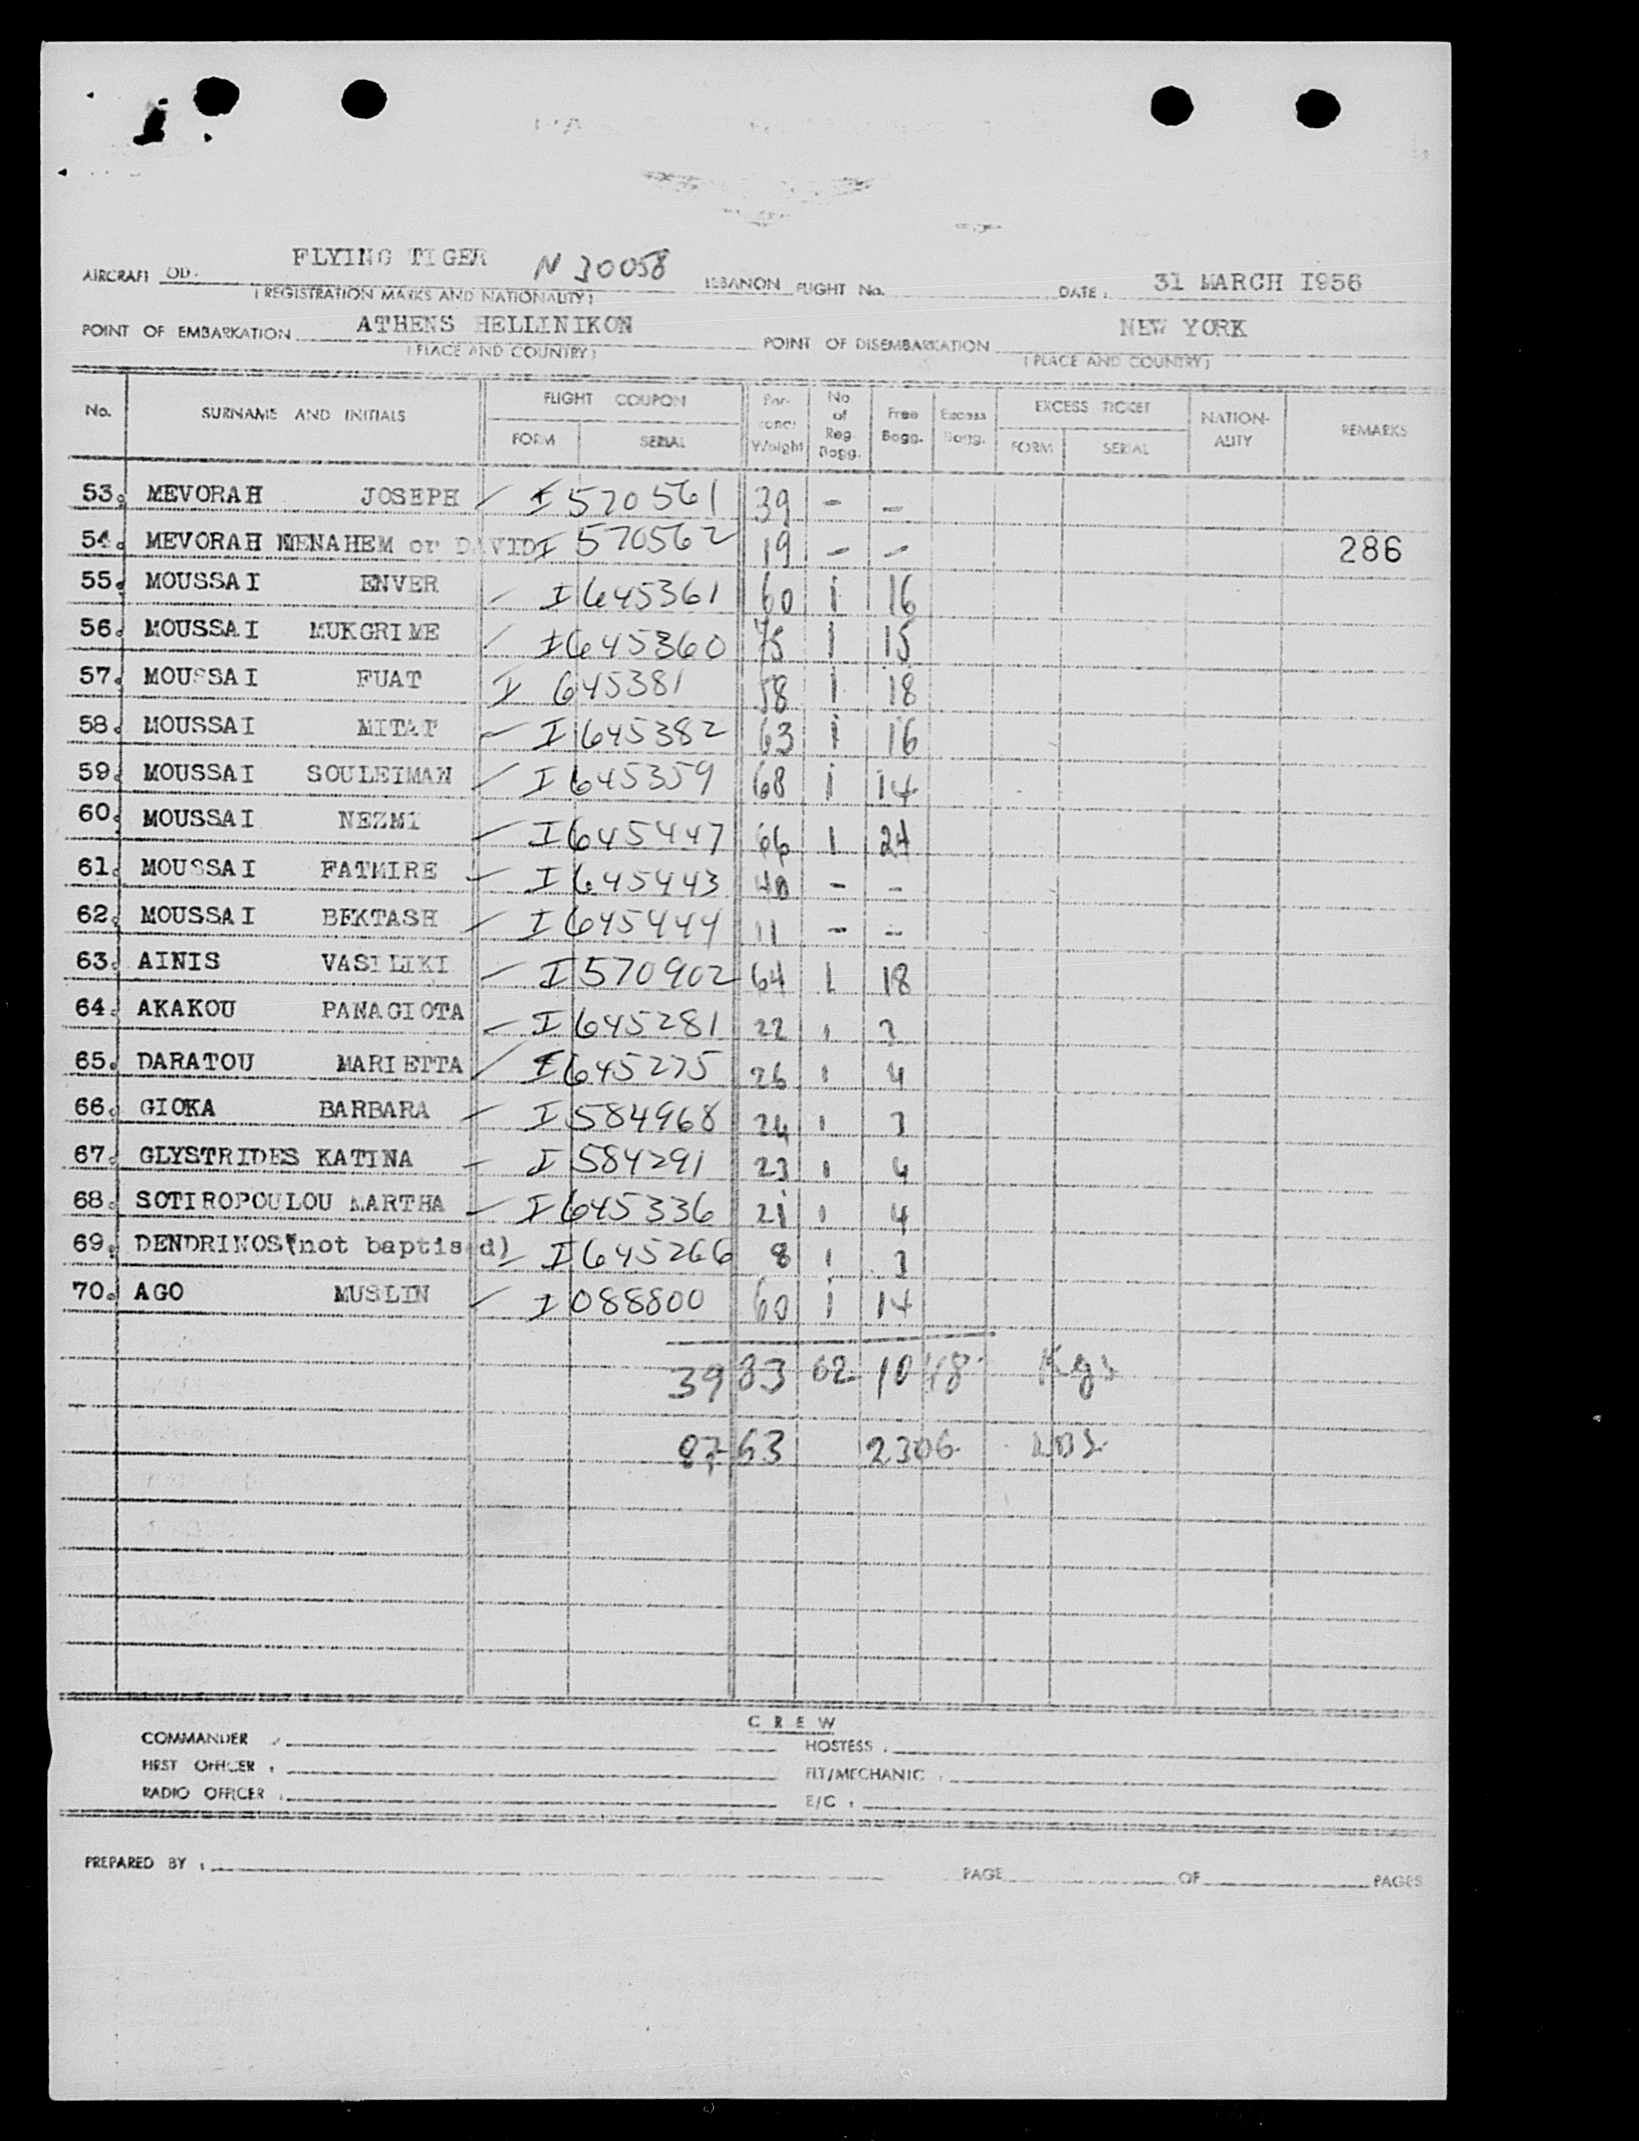 FLYING TIGER N 30058
AIRCRAFT OD. LEBANON FLIGHT No. DATE: 31 MARCH I956
(REGISTRATION MARKS AND NATIONALITY)
POINT OF EMBARKATION ATHENS HELLINIKON POINT OF DISEMBARKATION NEW YORK
(PLACE AND COUNTRY) (PLACE AND COUNTRY)
No. SURNAME AND INITIALS FLIGHT COUPON FORM SERIAL Weight No of Reg. Bagg. Free Bagg. Excess Bagg. EXCESS TICKET FORM SERIAL NATION-ALITY REMARKS
53. MEVORAH JOSEPH I 570561 39 - -
54. MEVORAH MENAHEM or DAVID I 570562 19 - - 286
55. MOUSSAI ENVER I 645361 60 1 16
56. MOUSSAI MUKGRIME I 645360 75 1 15
57. MOUSSAI FUAT I 645381 58 1 18
58. MOUSSAI MITAT I 645382 63 1 16
59. MOUSSAI SOULEIMAN I 645359 68 1 14
60. MOUSSAI NEZMI I 645447 66 1 24
61. MOUSSAI FATMIRE I 645443 40 - -
62. MOUSSAI BEKTASH I 645444 11 - -
63. AINIS VASILIKI I 570902 64 1 18
64. AKAKOU PANAGIOTA I 645281 22 1 3
65. DARATOU MARIETTA I 645275 26 1 4
66. GIOKA BARBARA I 584968 24 1 3
67. GLYSTRIDES KATINA I 584291 23 1 4
68. SOTIROPOULOU MARTHA I 645336 21 1 4
69. DENDRINOS (not baptised) I 645266 8 1 3
70. AGO MUSLIN I 088800 60 1 14
3983 62 1048 Kgs
8763 2306 LBS
CREW
COMMANDER : HOSTESS :
FIRST OFFICER : FLT/MECHANIC :
RADIO OFFICER : E/C :
PREPARED BY : PAGE OF PAGES